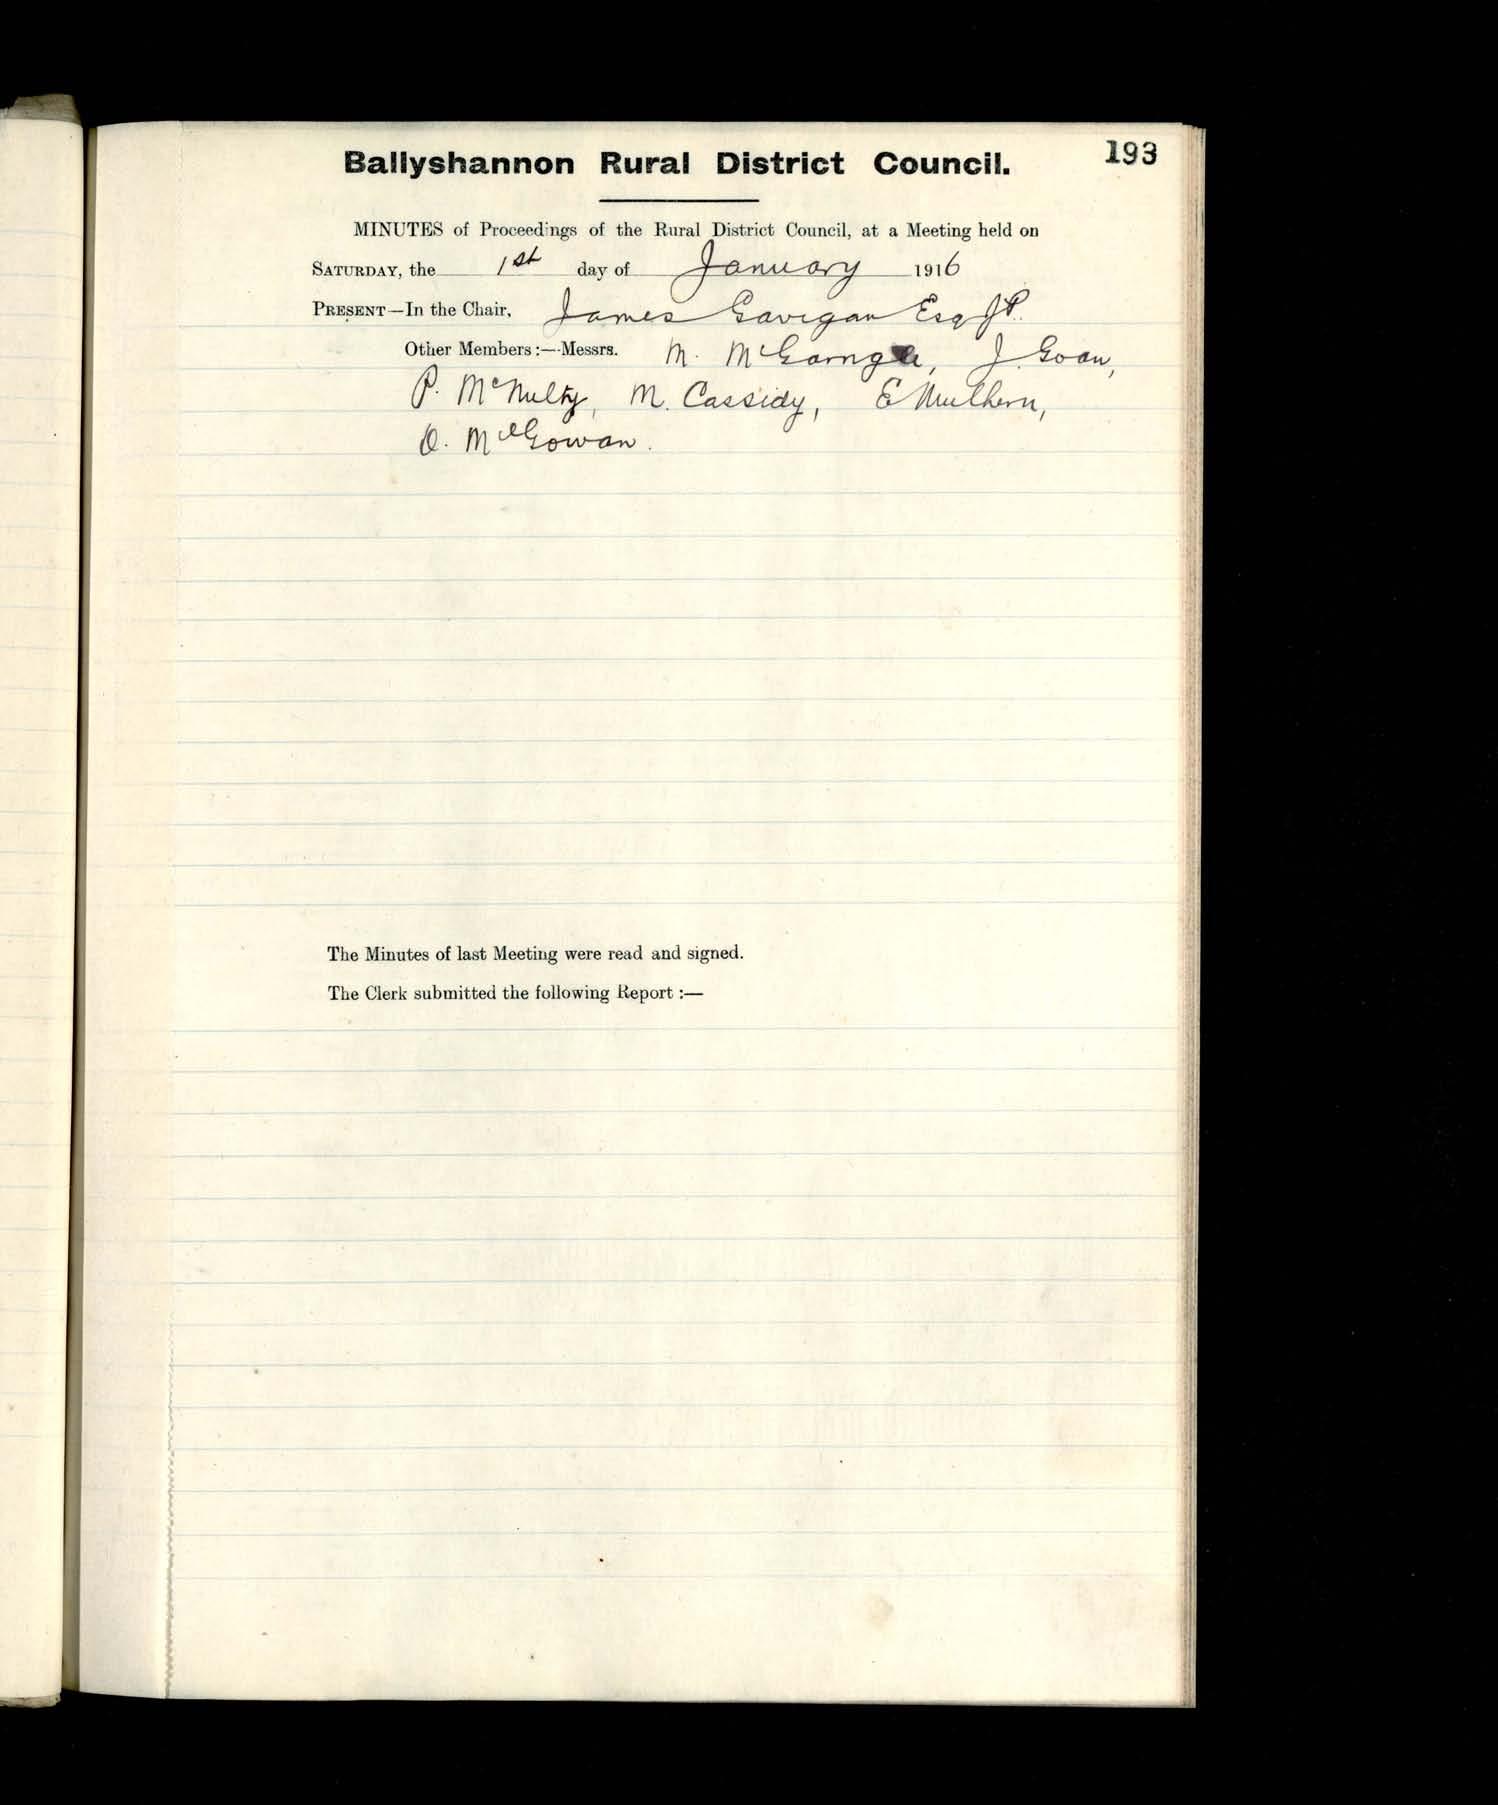 193
Ballyshannon Rural District Council.
MINUTES of Proceedings of the Rural District Council, at a Meeting held on
SATURDAY, the 1st day of January 1916
PRESENT—In the Chair, James Gavigan Esq J.P.
Other Members:—Messrs. M. McGarrigle, J. Goan,
P. McNulty, M. Cassidy, E Mulhern,
O. McGowan.
The Minutes of last Meeting were read and signed.
The Clerk submitted the following Report :—